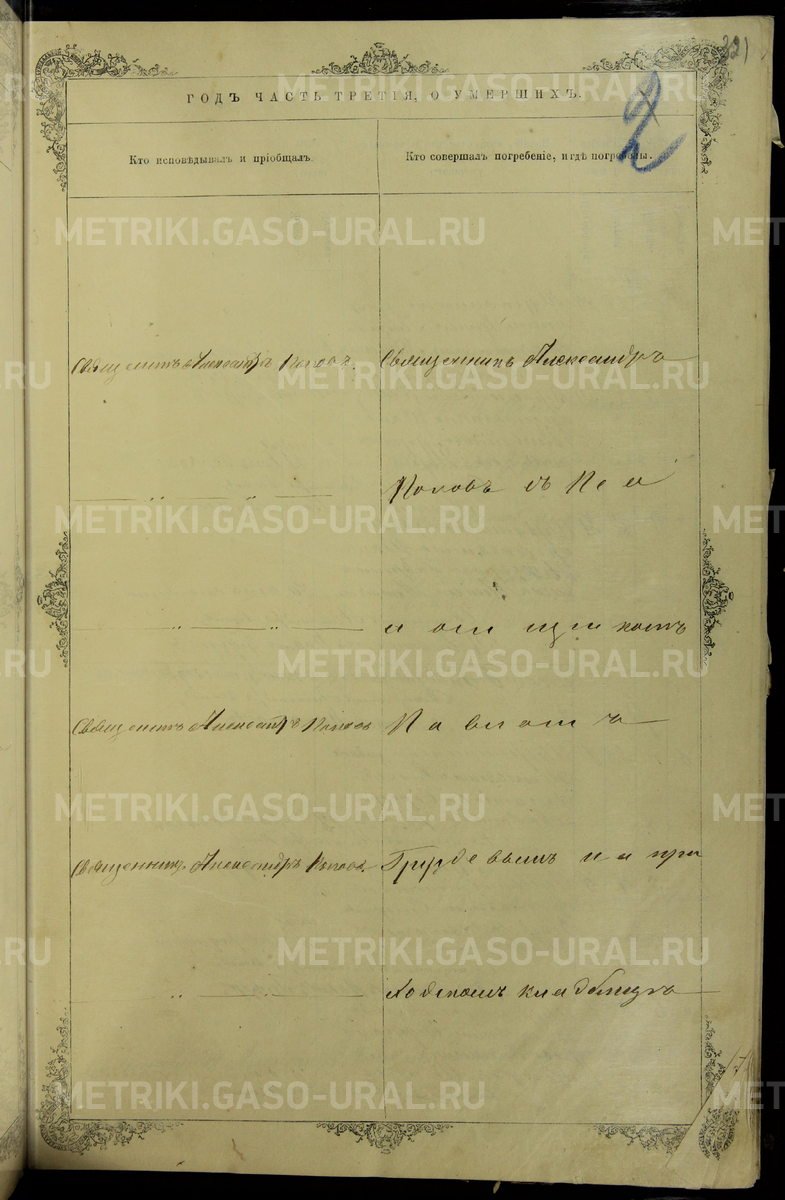 221
ГОДЪ ЧАСТЬ ТРЕТІЯ, О УМЕРШИХЪ.
2
Кто исповѣдывалъ и пріобщалъ.
Кто совершалъ погребеніе, и гдѣ погребены.
Священникъ Александръ Поповъ.
Священникъ Александръ
— „ — „ —
Поповъ съ
„ — „ —
Священникъ Александръ Поповъ
Священникъ Александръ Поповъ.
на при
„ — „ —
ходскомъ кладбищѣ
METRIKI.GASO-URAL.RU